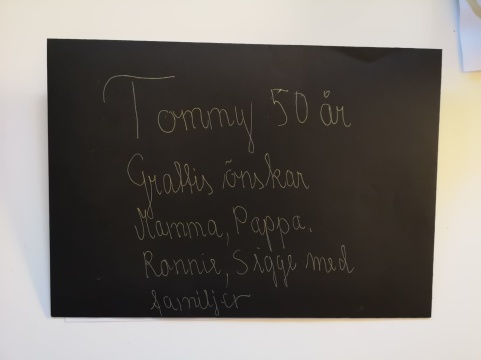 Tommy 50 år
Grattis önskar
Mamma, Pappa.
Ronnie, Sigge med
familjer